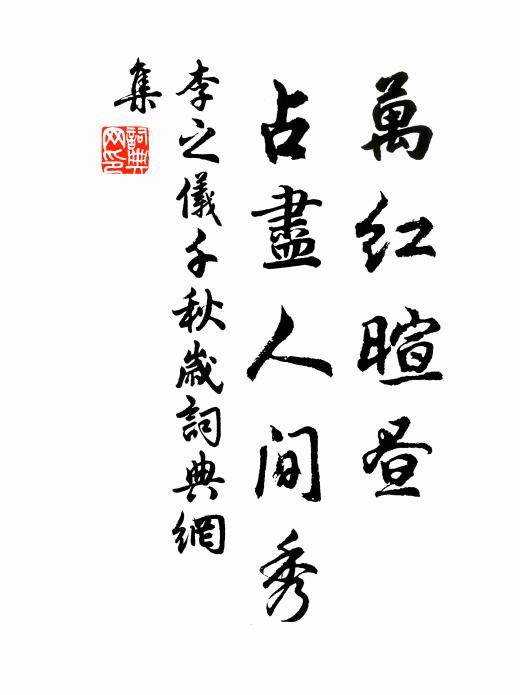 萬红暄昼
占盡人间秀
李之儀千秋歲詞典網
集
詞典网印